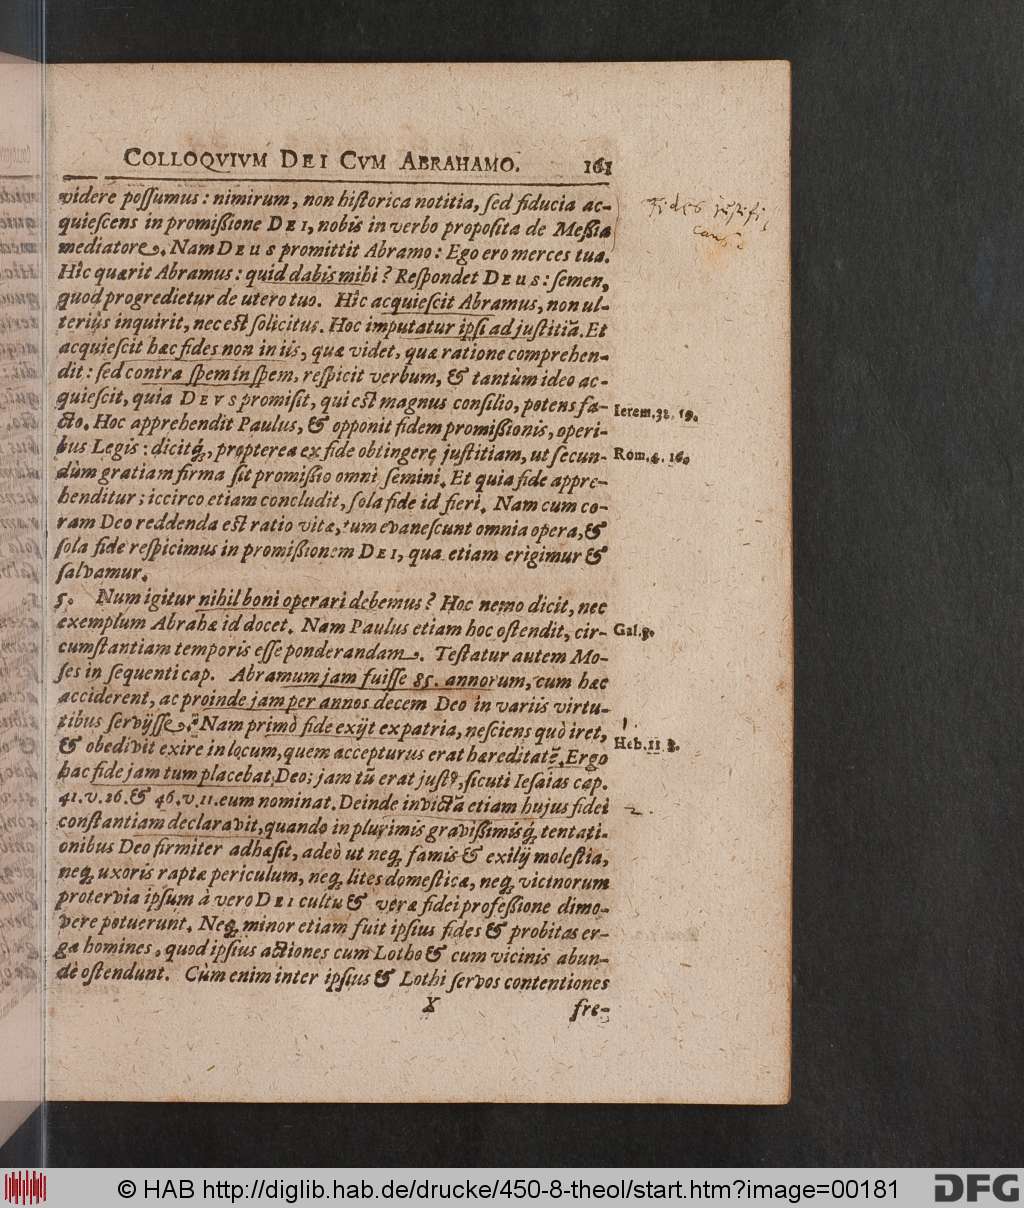 COLLOQVIVM DEI CVM ABRAHAMO. 161
videre poſſumus: nimirum, non hiſtorica notitia, ſed fiducia ac-
quieſcens in promiſſione DEI, nobis in verbo propoſita de Meſſia
mediatore. Nam DEUS promittit Abramo: Ego ero merces tua.
Hîc quærit Abramus: quid dabis mihi? Reſpondet DEUS: ſemen,
quod progredietur de utero tuo. Hîc acquieſcit Abramus, non ul-
teriùs inquirit, nec eſt ſolicitus. Hoc imputatur ipſi ad juſtitiã. Et
acquieſcit hæc fides non in iis, quæ videt, quæ ratione comprehen-
dit: ſed contra ſpem in ſpem, reſpicit verbum, & tantùm ideo ac-
quieſcit, quia DEVS promiſit, qui eſt magnus conſilio, potens fa-
Ierem. 32. 19.
cto. Hoc apprehendit Paulus, & opponit fidem promiſſionis, operi-
bus Legis: dicitq́;, propterea ex fide obtingere juſtitiam, ut ſecun-
Rom. 4. 16.
dùm gratiam firma ſit promiſſio omni ſemini. Et quia fide appre-
henditur; iccirco etiam concludit, ſola fide id fieri. Nam cum co-
ram Deo reddenda eſt ratio vitæ, tum evaneſcunt omnia opera, &
ſola fide reſpicimus in promiſſionem DEI, qua etiam erigimur &
ſalvamur.
5. Num igitur nihil boni operari debemus? Hoc nemo dicit, nec
exemplum Abrahæ id docet. Nam Paulus etiam hoc oſtendit, cir-
Gal. 3.
cumſtantiam temporis eſſe ponderandam. Teſtatur autem Mo-
ſes in ſequenti cap. Abramum jam fuiſſe 85. annorum, cum hæc
acciderent, ac proinde jam per annos decem Deo in variis virtu-
tibus ſervijſſe. Nam primò fide exijt ex patria, neſciens quò iret,
1.
& obedivit exire in locum, quem accepturus erat hæreditatẽ. Ergo
Heb. 11. 8.
hac fide jam tum placebat Deo; jam tũ erat juſtꝰ, ſicuti Ieſaias cap.
41. v. 26. & 46. v. 11. eum nominat. Deinde invictã etiam hujus fidei
2.
conſtantiam declaravit, quando in plurimis graviſſimisq́; tentati-
onibus Deo firmiter adhæſit, adeò ut neq; famis & exilij moleſtia,
neq; uxoris raptæ periculum, neq; lites domeſticæ, neq; vicinorum
protervia ipſum à vero DEI cultu & veræ fidei profeſſione dimo-
vere potuerunt. Neq; minor etiam fuit ipſius fides & probitas er-
ga homines, quod ipſius actiones cum Lotho & cum vicinis abun-
dè oſtendunt. Cùm enim inter ipſius & Lothi ſervos contentiones
X fre-
© HAB http://diglib.hab.de/drucke/450-8-theol/start.htm?image=00181
DFG